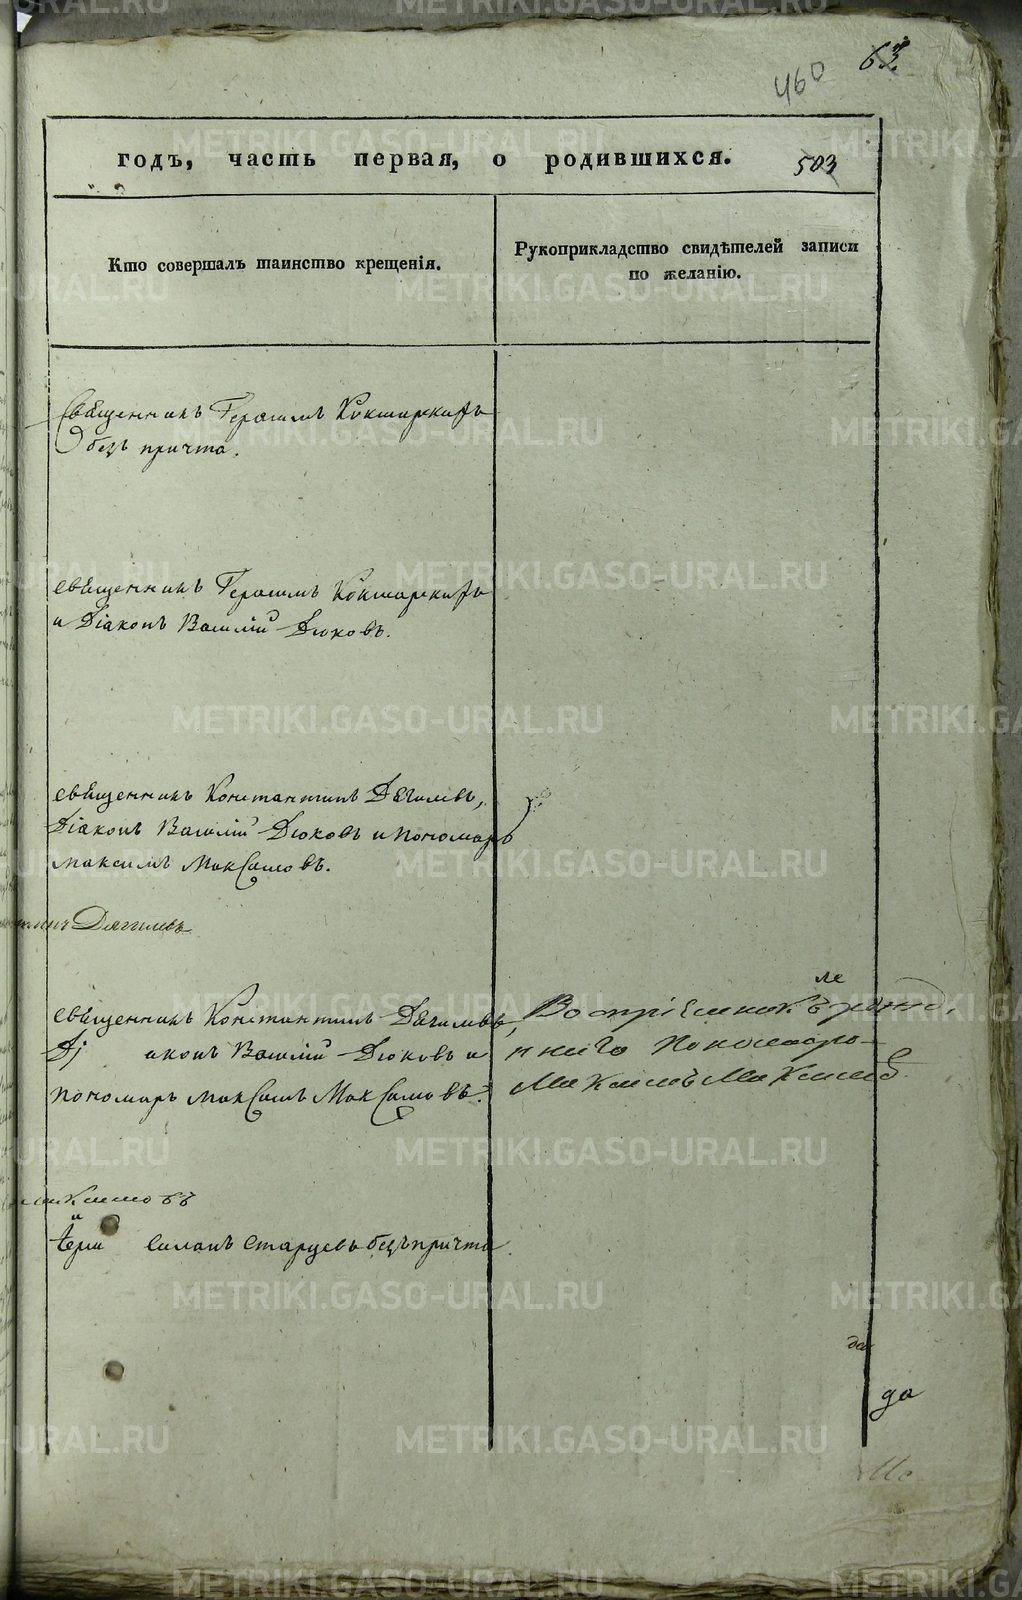 63
460
годъ, часть первая, о родившихся.
503
Кто совершалъ таинство крещенія.
Рукоприкладство свидѣтелей записи
по желанію.
Священникъ Герасимъ Кокшарскій
безъ причта.
священникъ Герасимъ Кокшарскій
и Діаконъ Василій Дюковъ.
священникъ Константинъ Дягилевъ,
Діаконъ Василій Дюковъ и пономарь
максимъ Максимовъ.
Дягилевъ
священникъ Константинъ Дягилевъ,
Ді аконъ Василій Дюковъ и
пономарь максимъ Максимовъ.
ле
Воспріемникъ
пономарь
Максимъ Максимов
Максимовъ
и
Іерй Симонъ Старцевъ безъ причта.
да
да
METRIKI.GASO-URAL.RU